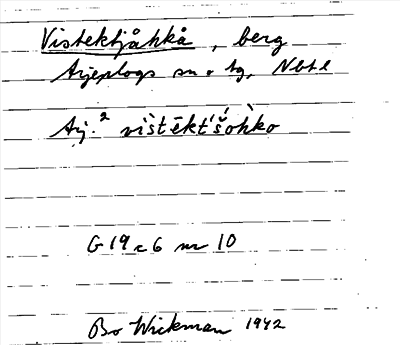 Vistektjåhkå, berg
Arjeplogs sn o tg, Nbtl
Arj.² vìstēkt'šohko
G 19 c 6 nr 10
Bo Wickman 1942